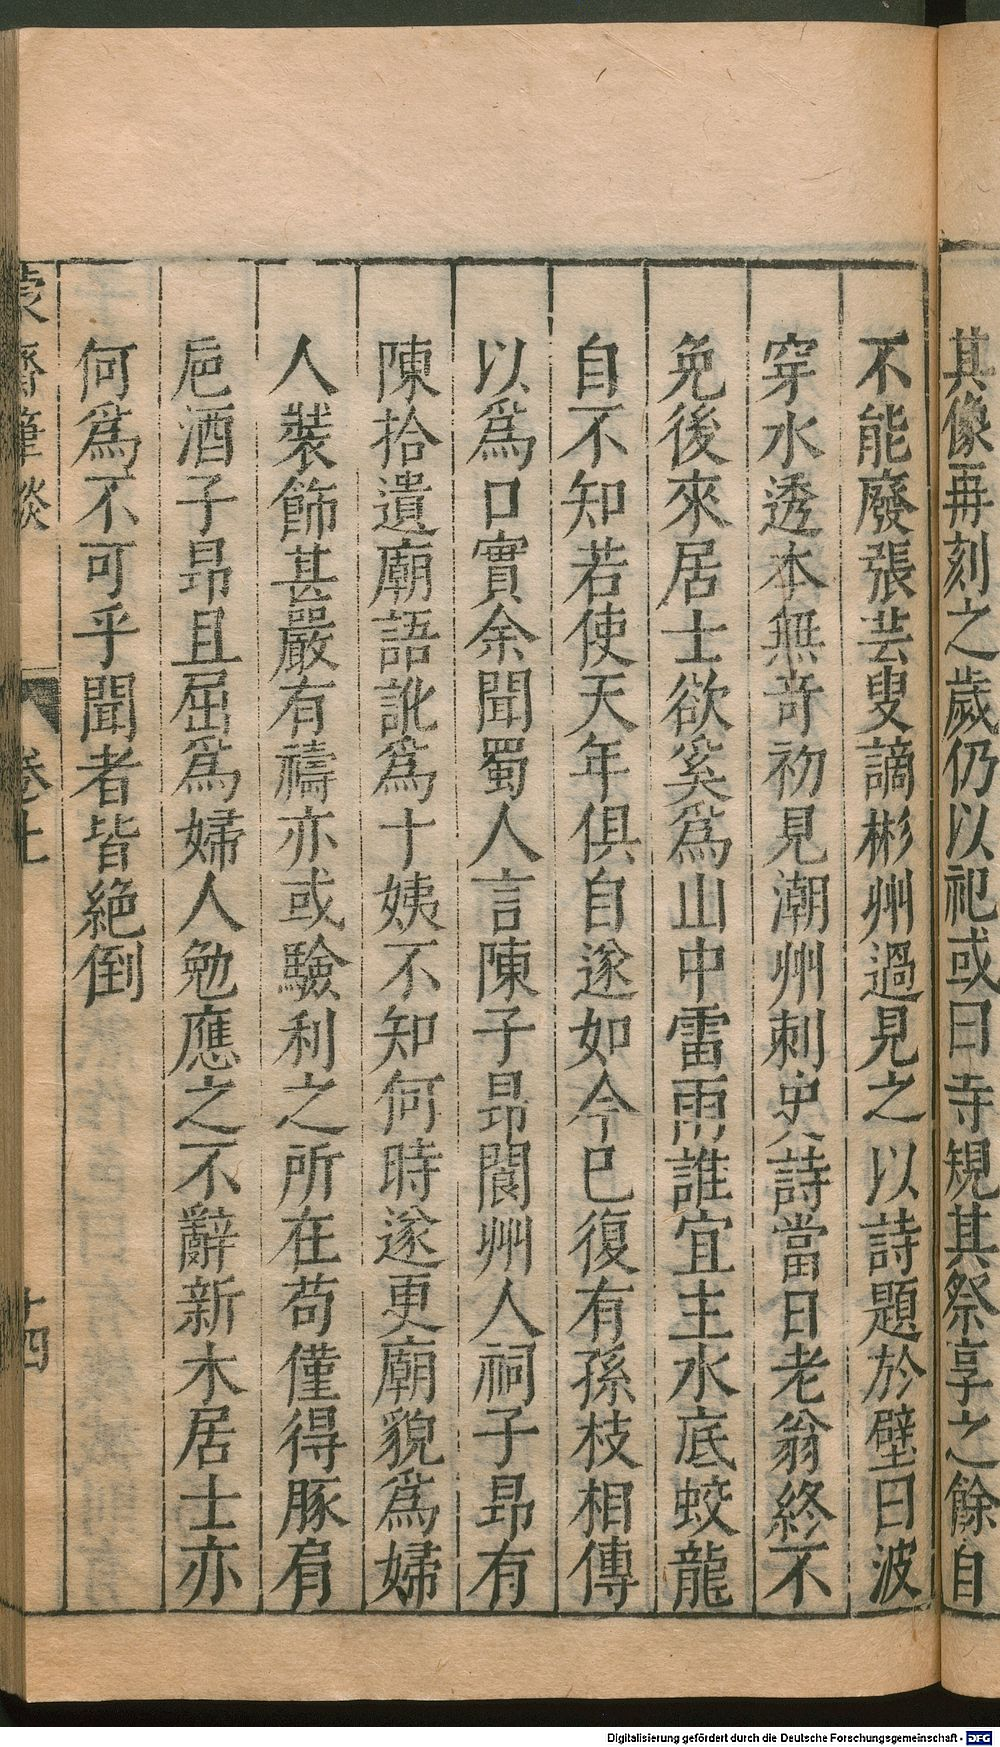 其像再刻之歲仍以祀或曰寺規其祭享之餘自
不能廢張芸叟謫彬州過見之以詩題於壁曰波
穿水透本無竒初見潮州刺史詩當日老翁終不
免後來居士欲奚爲山中雷雨誰宜主水底蛟龍
自不知若使天年俱自遂如今已復有孫枝相傳
以爲口實余聞蜀人言陳子昻閬州人祠子昻有
陳拾遺廟語訛爲十姨不知何時遂更廟貌爲婦
人裝飾甚嚴有禱亦或驗利之所在苟僅得豚肩
巵酒子昻且屈爲婦人勉應之不辭新木居士亦
何爲不可乎聞者皆絶倒
蒙齋筆談
卷上
十四
Digitalisierung gefördert durch die Deutsche Forschungsgemeinschaft - DFG